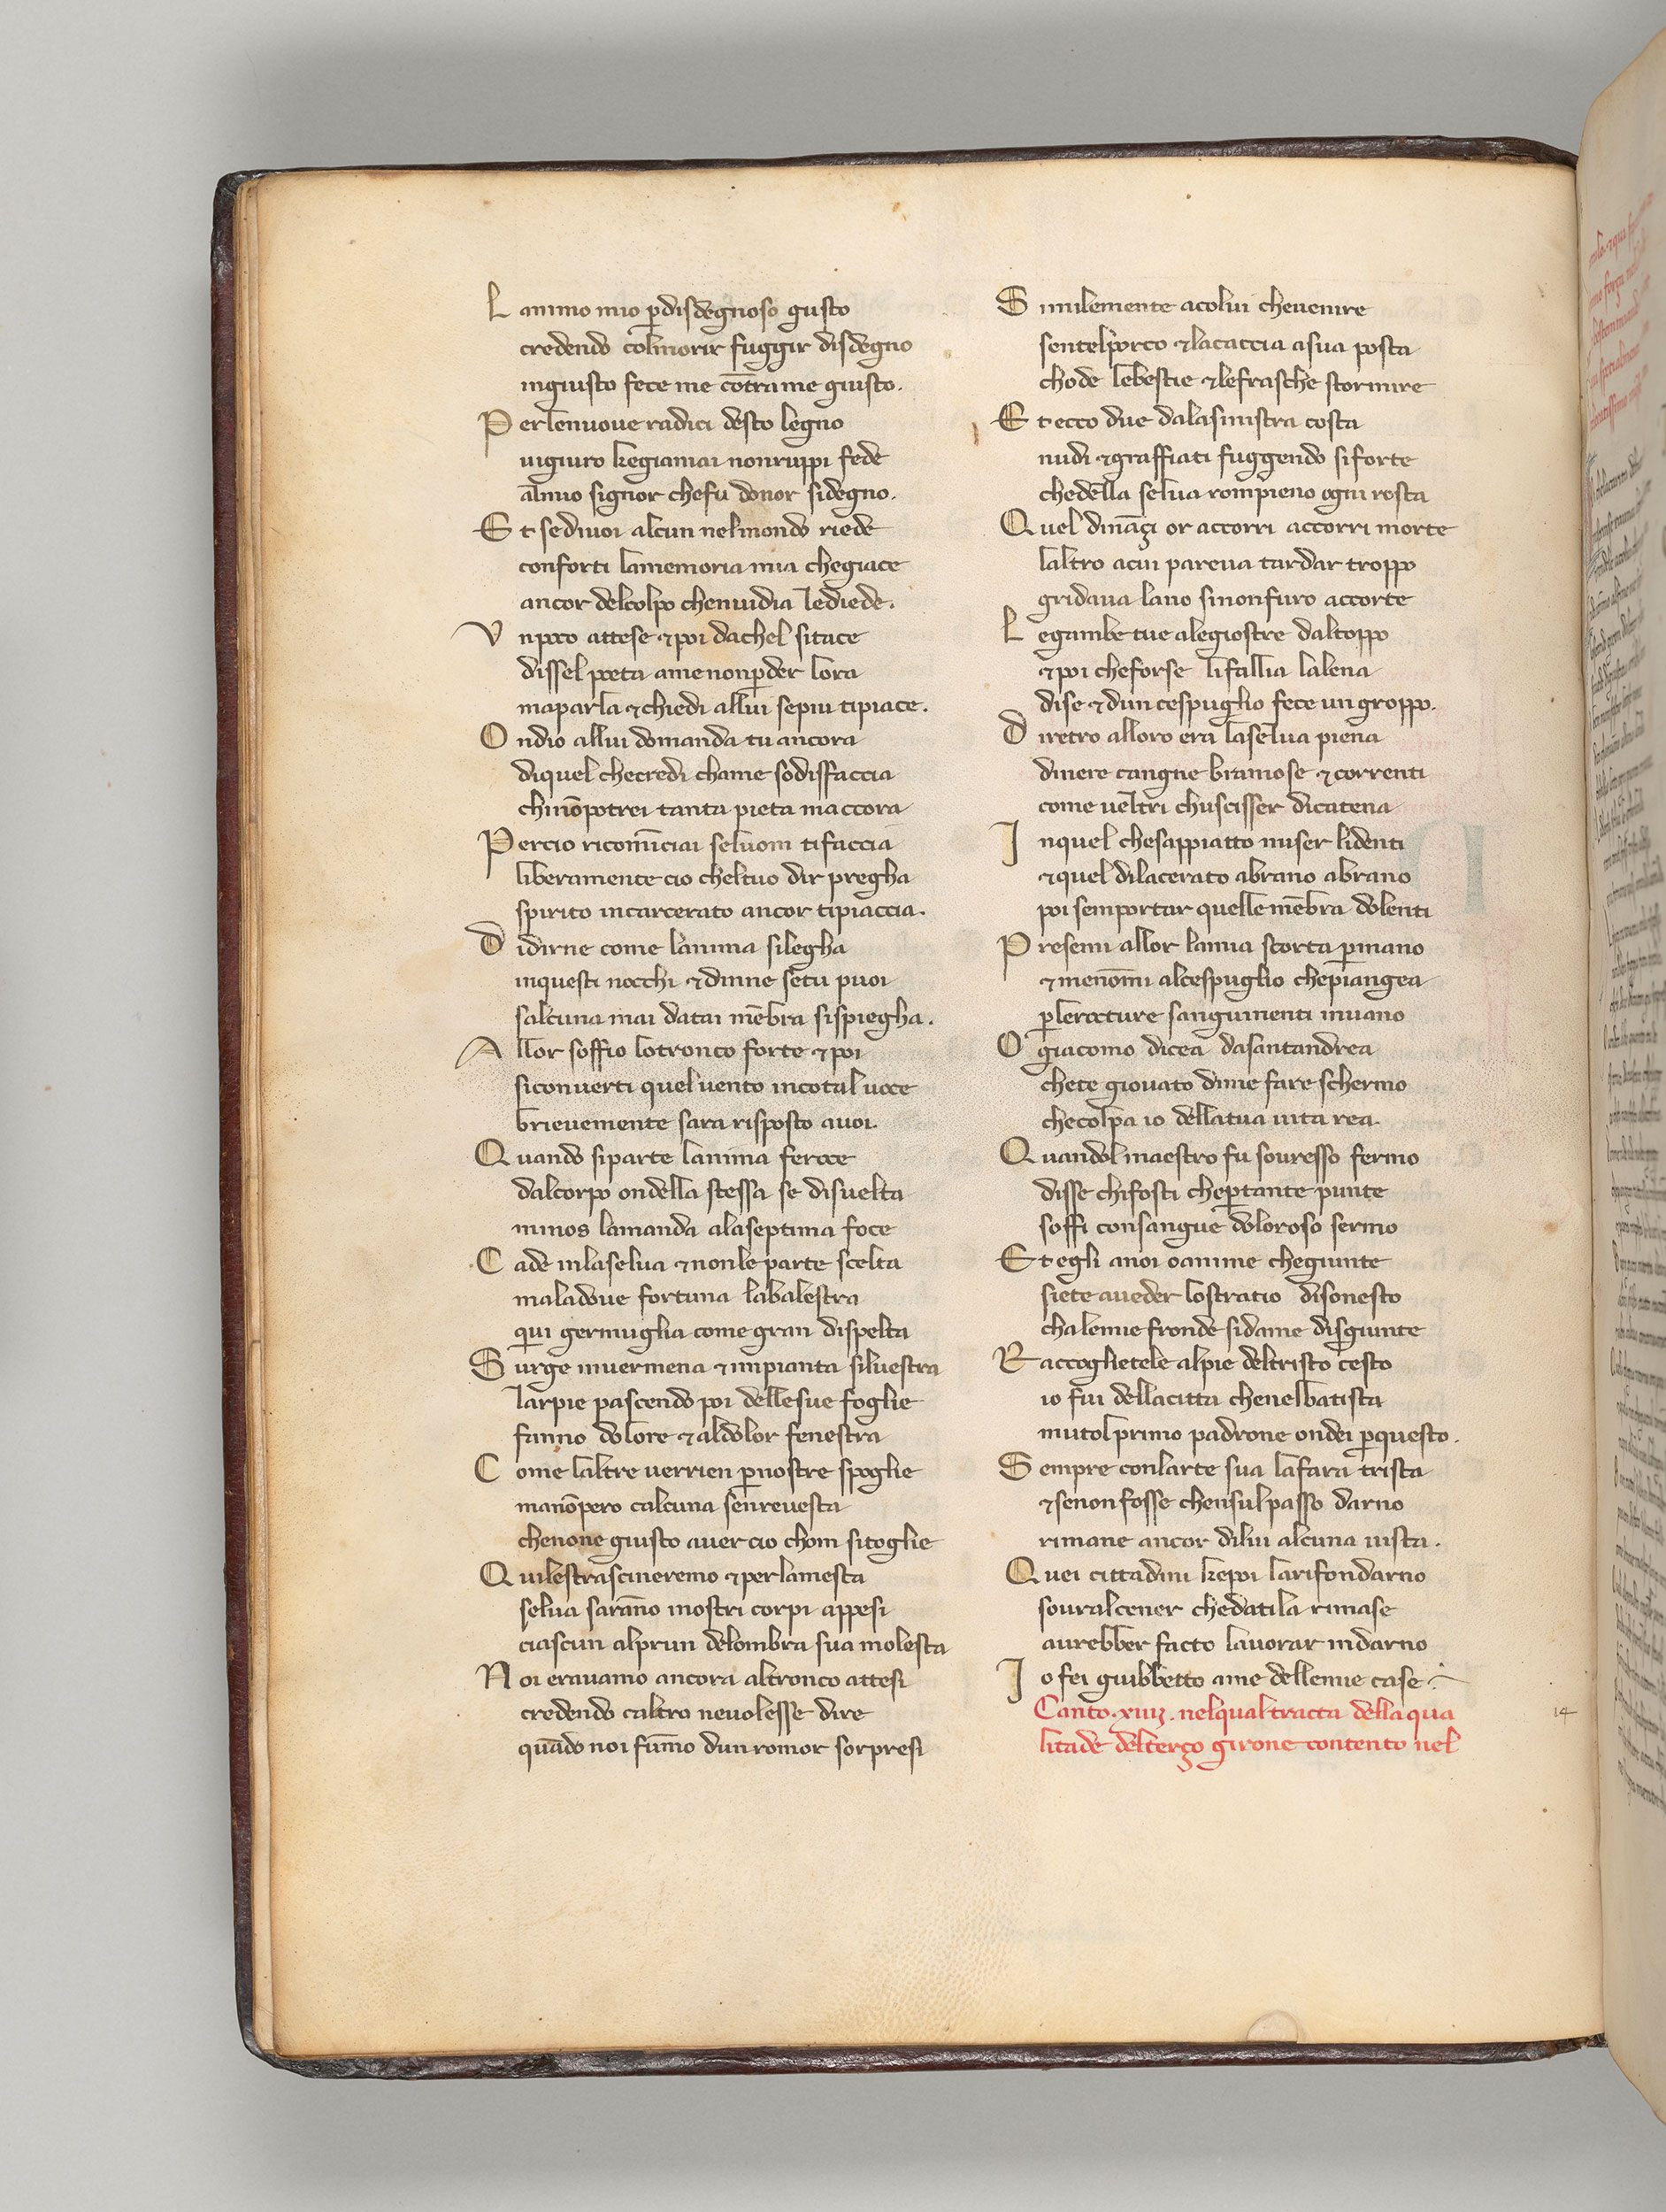 L animo mio p̲disdegnoso gusto
credendo colmorir fuggir disdegno
ingiusto fece me cōtrame giusto.
P erlenuoue radici desto legno
uigiuro kegiamai nonruppi fede
almio signor chefu donor sidegno.
E t sediuoi alcun nelmondo riede
conforti lamemoria mia chegiace
ancor delcolpo chenuidia lediede.
V npoco attese ⁊poi dachel sitace
dissel poeta amenonp̲der lora
maparla ⁊chiedi allui sepiu tipiace.
O ndio allui domanda tu ancora
diquel checredi chame sodisffaccia
chinōpotrei tanta pieta maccora
P ercio ricomīciai seluom tifaccia
liberamente cio cheltuo dir pregha
spirito incarcerato ancor tipiaccia.
D idirne come lanima silegha
inquesti nocchi ⁊dinne setu puoi
salcuna mai datai mēbra sispiegha.
A llor soffio lotronco forte ⁊poi
siconuerti quel uento incotal uoce
brieuemente sara risposto auoi.
Q uando siparte lanima feroce
dalcorpo ondella stessa se disuelta
minos lamanda alaseptima foce
C ade inlaselua ⁊nonle parte scelta
maladoue fortuna labalestra
qui germuglia come gran dispelta
S urge inuermena ⁊inpianta siluestra
larpie pascendo poi dellesue foglie
fanno dolore ⁊aldolor fenestra
C ome laltre uerrien p̲nostre spoglie
manōpero calcuna senreuesta
chenone giusto auer cio chom sitoglie
Q uilestrascineremo ⁊perlamesta
selua sarāno inostri corpi appesi
ciascun alprun delombra sua molesta
N oi erauamo ancora altronco attesi
credendo caltro neuolesse dire
quādo noi fūmo dun romor sorpresi
S imilemente acolui cheuenire
sentelporco ⁊lacaccia asua posta
chode lebestie ⁊lefrasche stormire
E t ecco due dalasinistra costa
nudi ⁊graffiati fuggendo siforte
chedella selua rompieno ogni rosta
Q uel dināçi or accorri accorri morte
laltro acui pareua tardar troppo
gridaua lano sinonfuro accorte
L egambe tue alegiostre daltoppo
⁊poi cheforse lifallia lalena
dise ⁊dun cespuglio fece un groppo.
D iretro alloro era laselua piena
dinere cangne bramose ⁊correnti
come ueltri chuscisser dicatena
I nquel chesappiatto miser lidenti
⁊quel dilacerato abrano abrano
poi semportar quelle mēbra dolenti
P resemi allor lamia scorta p̲mano
⁊menōmi alcespuglio chepiangea
p̲lerotture sanguinenti inuano
O giacomo dicea dasantandrea
chete giouato dime fare schermo
checolpa io dellatua uita rea.
Q uandol maestro fu souresso fermo
disse chifosti chep̲tante punte
soffi consangue doloroso sermo
E t egli anoi oanime chegiunte
siete aueder lostratio disonesto
chalemie fronde sidame disgiunte
R accoglietele alpie deltristo cesto
io fui dellacitta chenelbatista
mutol primo padrone ondei p̲questo.
S empre conlarte sua lafara trista
⁊senon fosse chensulpasso darno
rimane ancor dilui alcuna uista.
Q uei cittadini kepoi larifondarno
souralcener chedatila rimase
aurebber facto lauorar indarno
I o fei guibbetto ame dellemie case.
Canto .xiiij. nelqual tracta della qua
litade delterço girone contento nel
14